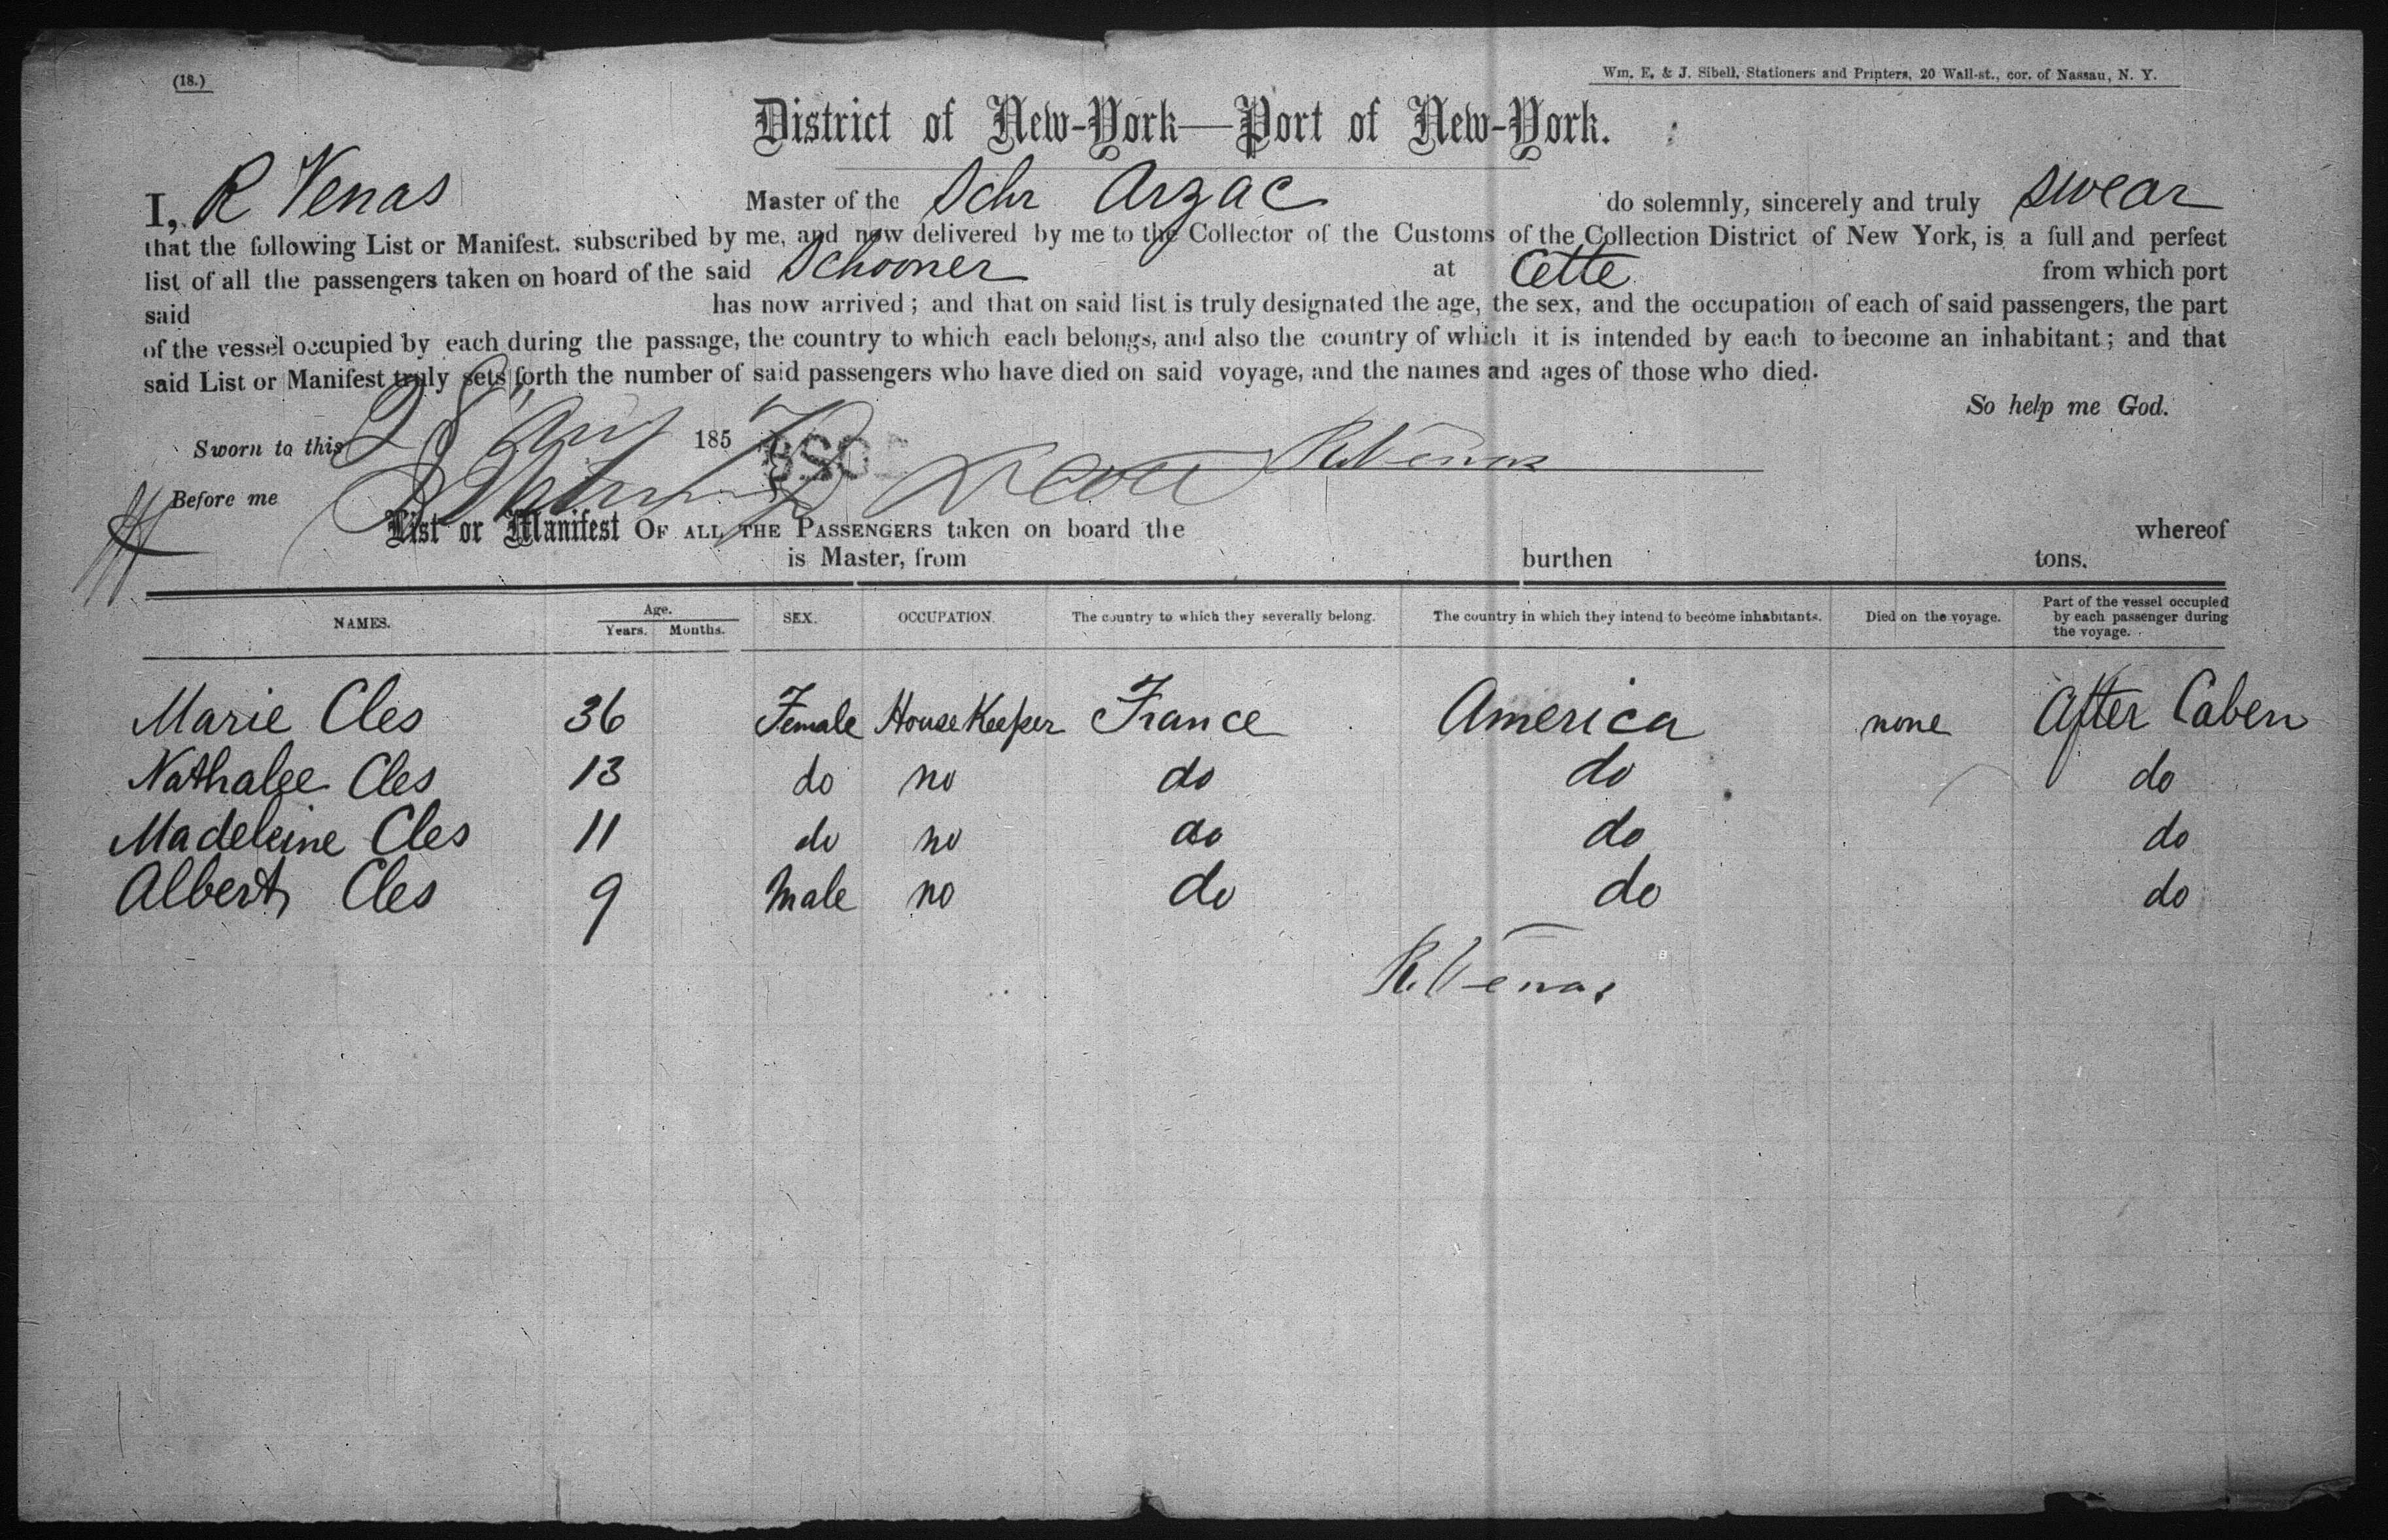 (18.)
Wm. E. & J. Sibell, Stationers and Printers, 20 Wall-st., cor. of Nassau, N. Y.
District of New-York—Port of New-York.
I, R Venas Master of the Schr Arzac do solemnly, sincerely and truly swear
that the following List or Manifest, subscribed by me, and now delivered by me to the Collector of the Customs of the Collection District of New York, is a full and perfect
list of all the passengers taken on board of the said Schooner at Cette from which port
said has now arrived; and that on said list is truly designated the age, the sex, and the occupation of each of said passengers, the part
of the vessel occupied by each during the passage, the country to which each belongs, and also the country of which it is intended by each to become an inhabitant; and that
said List or Manifest truly sets forth the number of said passengers who have died on said voyage, and the names and ages of those who died.
So help me God.
Sworn to this 28 185
R. Venas
Before me
List or Manifest OF ALL THE PASSENGERS taken on board the whereof
is Master, from burthen tons.
NAMES. Age. Years. Months. SEX. OCCUPATION. The country to which they severally belong. The country in which they intend to become inhabitants. Died on the voyage. Part of the vessel occupied by each passenger during the voyage.
Marie Cles 36 Female House Keeper France America none After Caben
Nathalee Cles 13 do no do do do
Madeleine Cles 11 do no do do do
Albert Cles 9 Male no do do do
R. Venas